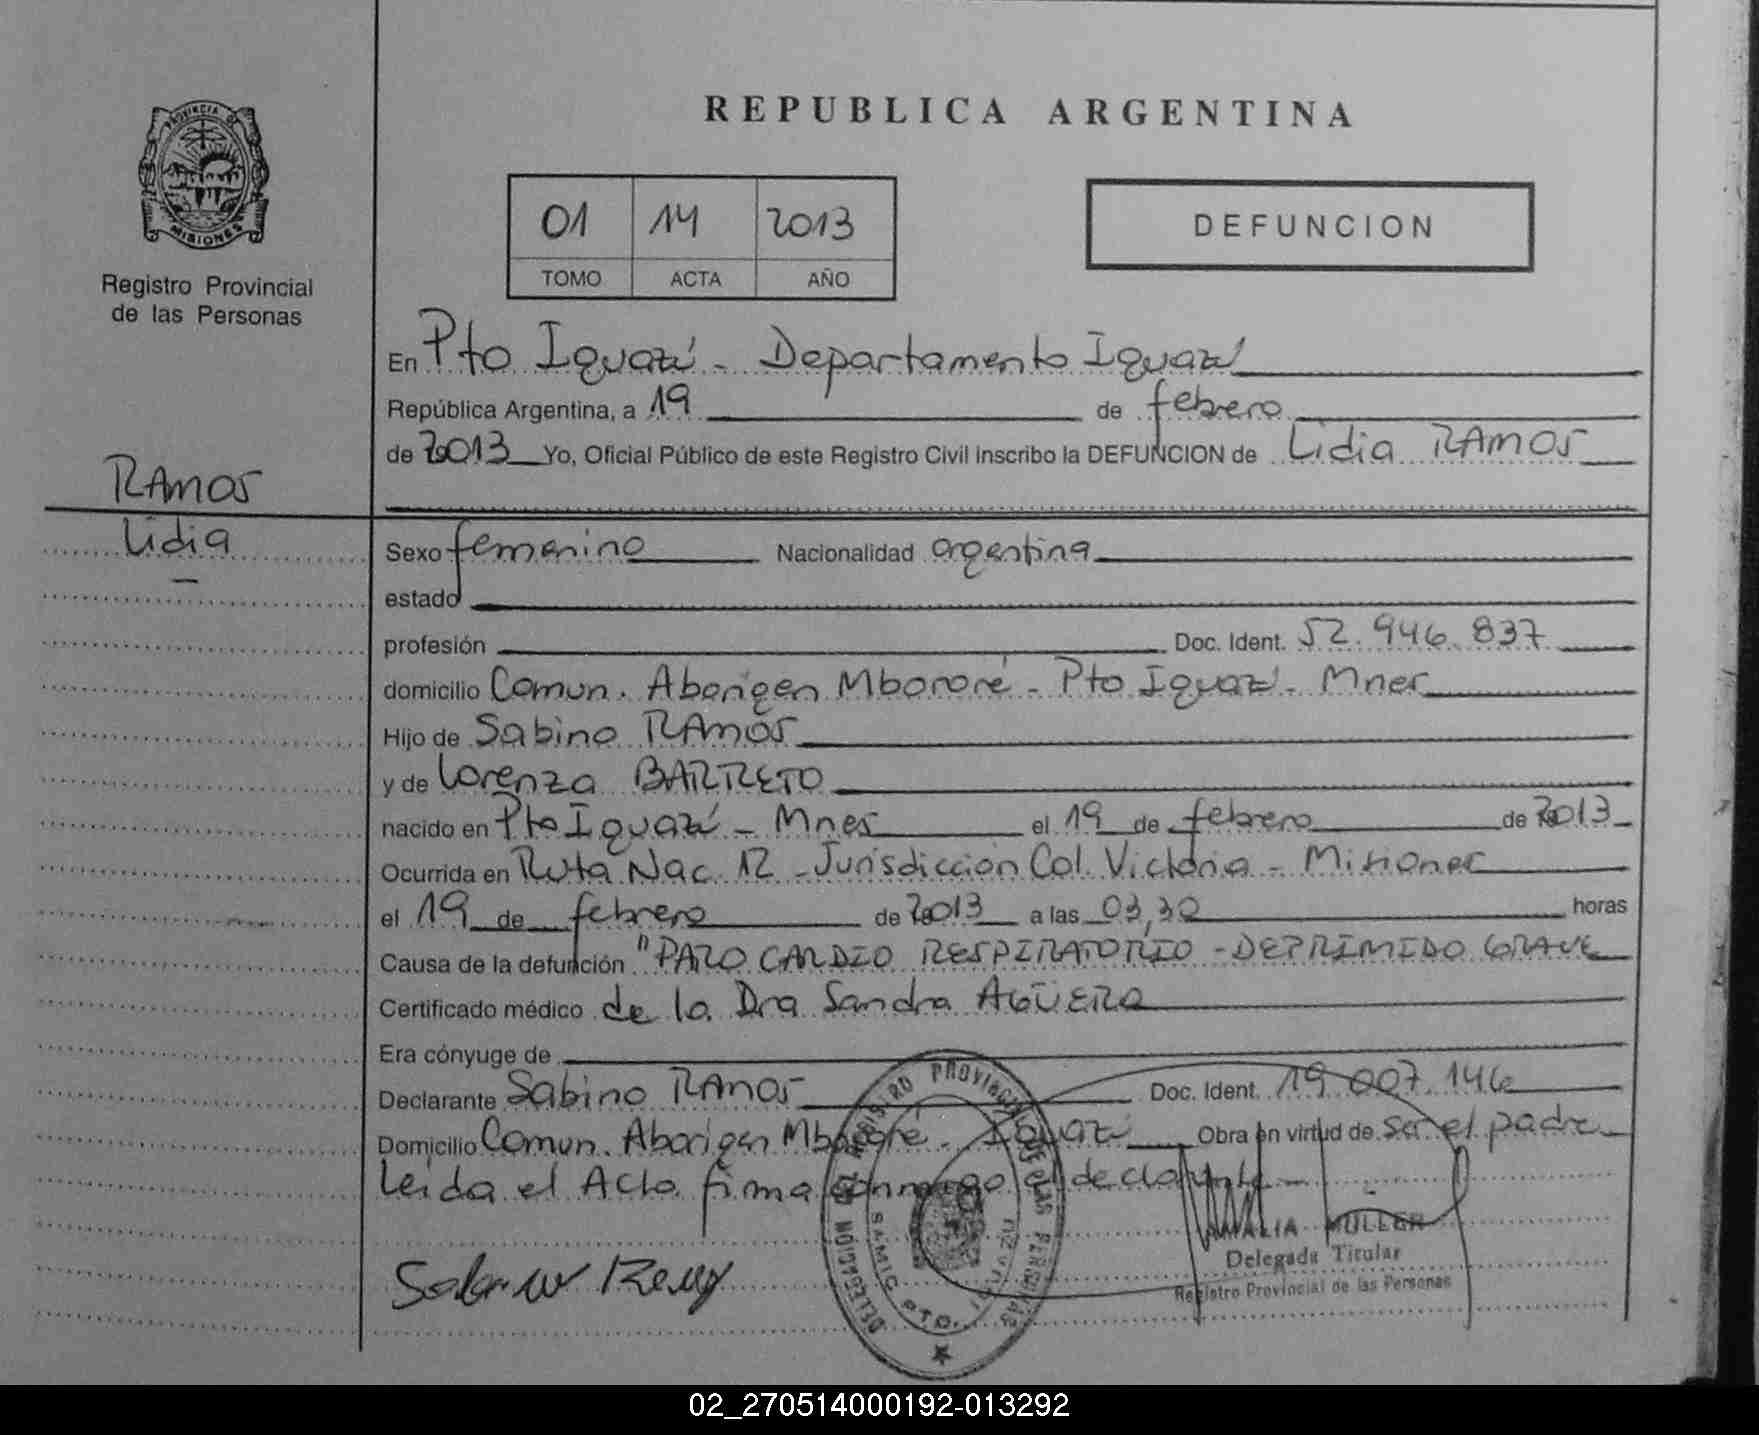 PROVINCIA D
MISIONES
Registro Provincial
de las Personas
REPUBLICA ARGENTINA
01 14 2013
TOMO ACTA AÑO
DEFUNCION
En Pto Iguazú - Departamento Iguazú
República Argentina, a 19 de febrero
de 2013 Yo, Oficial Público de este Registro Civil inscribo la DEFUNCION de Lidia RAMOS
RAMOS
Lidia
Sexo femenino Nacionalidad argentina
estado
profesión Doc. Ident. 52.946.837
domicilio Comun. Aborigen Mbororé - Pto Iguazú - Mnes
Hijo de Sabino RAMOS
y de Lorenza BARRETO
nacido en Pto Iguazú - Mnes el 19 de febrero de 2013
Ocurrida en Ruta Nac. 12 - Jurisdicción Col. Victoria - Misiones
el 19 de febrero de 2013 a las 03,30 horas
Causa de la defunción "PARO CARDIO RESPIRATORIO - DEPRIMIDO GRAVE
Certificado médico de la Dra Sandra AGÜERO
Era cónyuge de
Declarante Sabino RAMOS Doc. Ident. 19.007.146
Domicilio Comun. Aborigen Mbororé - Iguazú Obra en virtud de ser el padre
Leída el Acta firma conmigo el declarante
DELEGACION REGISTRO PROVINCIAL DE LAS PERSONAS
SAMIC PTO. IGUAZU
AMALIA MULLER
Delegada Titular
Registro Provincial de las Personas
02_270514000192-013292